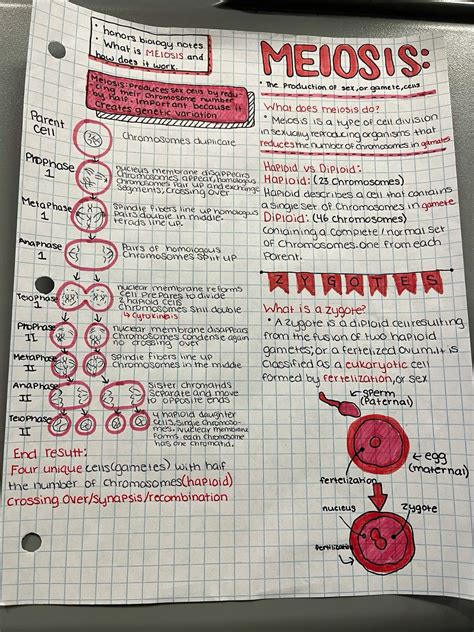 • honors biology notes
• What is MEIOSIS and
how does it work.
Meiosis: Produces sex cells by redu-
cing their chromosome number
by half. Important because it
creates genetic variation
Parent
Cell
Chromosomes duplicate
Prophase
1
nucleus membrane disappears
Chromosomes appear, homologous
Chromosomes pair up and exchange
segments, Crossing Over
Metaphase
1
Spindle fibers line up homologous
pairs double in middle.
tetrads line up.
Anaphase
1
Pairs of homologous
Chromosomes split up
Telophase
1
nuclear membrane reforms
cell prepares to divide
2 haploid cells
Chromosomes still double
↳ cytokinesis
Prophase
II
nuclear membrane disappears
Chromosomes condense again
no crossing over
Metaphase
II
Spindle fibers line up
Chromosomes in the middle
Anaphase
II
Sister chromatids
Separate and move
to opposite ends
Telophase
II
4 haploid daughter
cells, single chromoso-
mes. nuclear membrane
forms. each chromosome
has one chromatid.
End result:
Four unique cells (gametes) with half
the number of chromosomes (haploid)
Crossing Over/synapsis/recombination
MEIOSIS:
• The production of sex, or gamete, cells
What does meiosis do?
• Meiosis is a type of cell division
in sexually reproducing organisms that
reduces the number of chromosomes in gametes
Haploid vs Diploid:
Haploid: (23 Chromosomes)
Haploid describes a cell that contains
a single set of Chromosomes in gamete
Diploid: (46 chromosomes)
containing a complete/normal set
of Chromosomes. one from each
Parent.
ZYGOTES
What is a zygote?
• A zygote is a diploid cell resulting
from the fusion of two haploid
gametes; or a fertelized ovum. it is
classified as a eukaryotic cell
formed by fertelization, or sex
sperm
(Paternal)
egg
(maternal)
fertelization
nucleus
zygote
fertelization